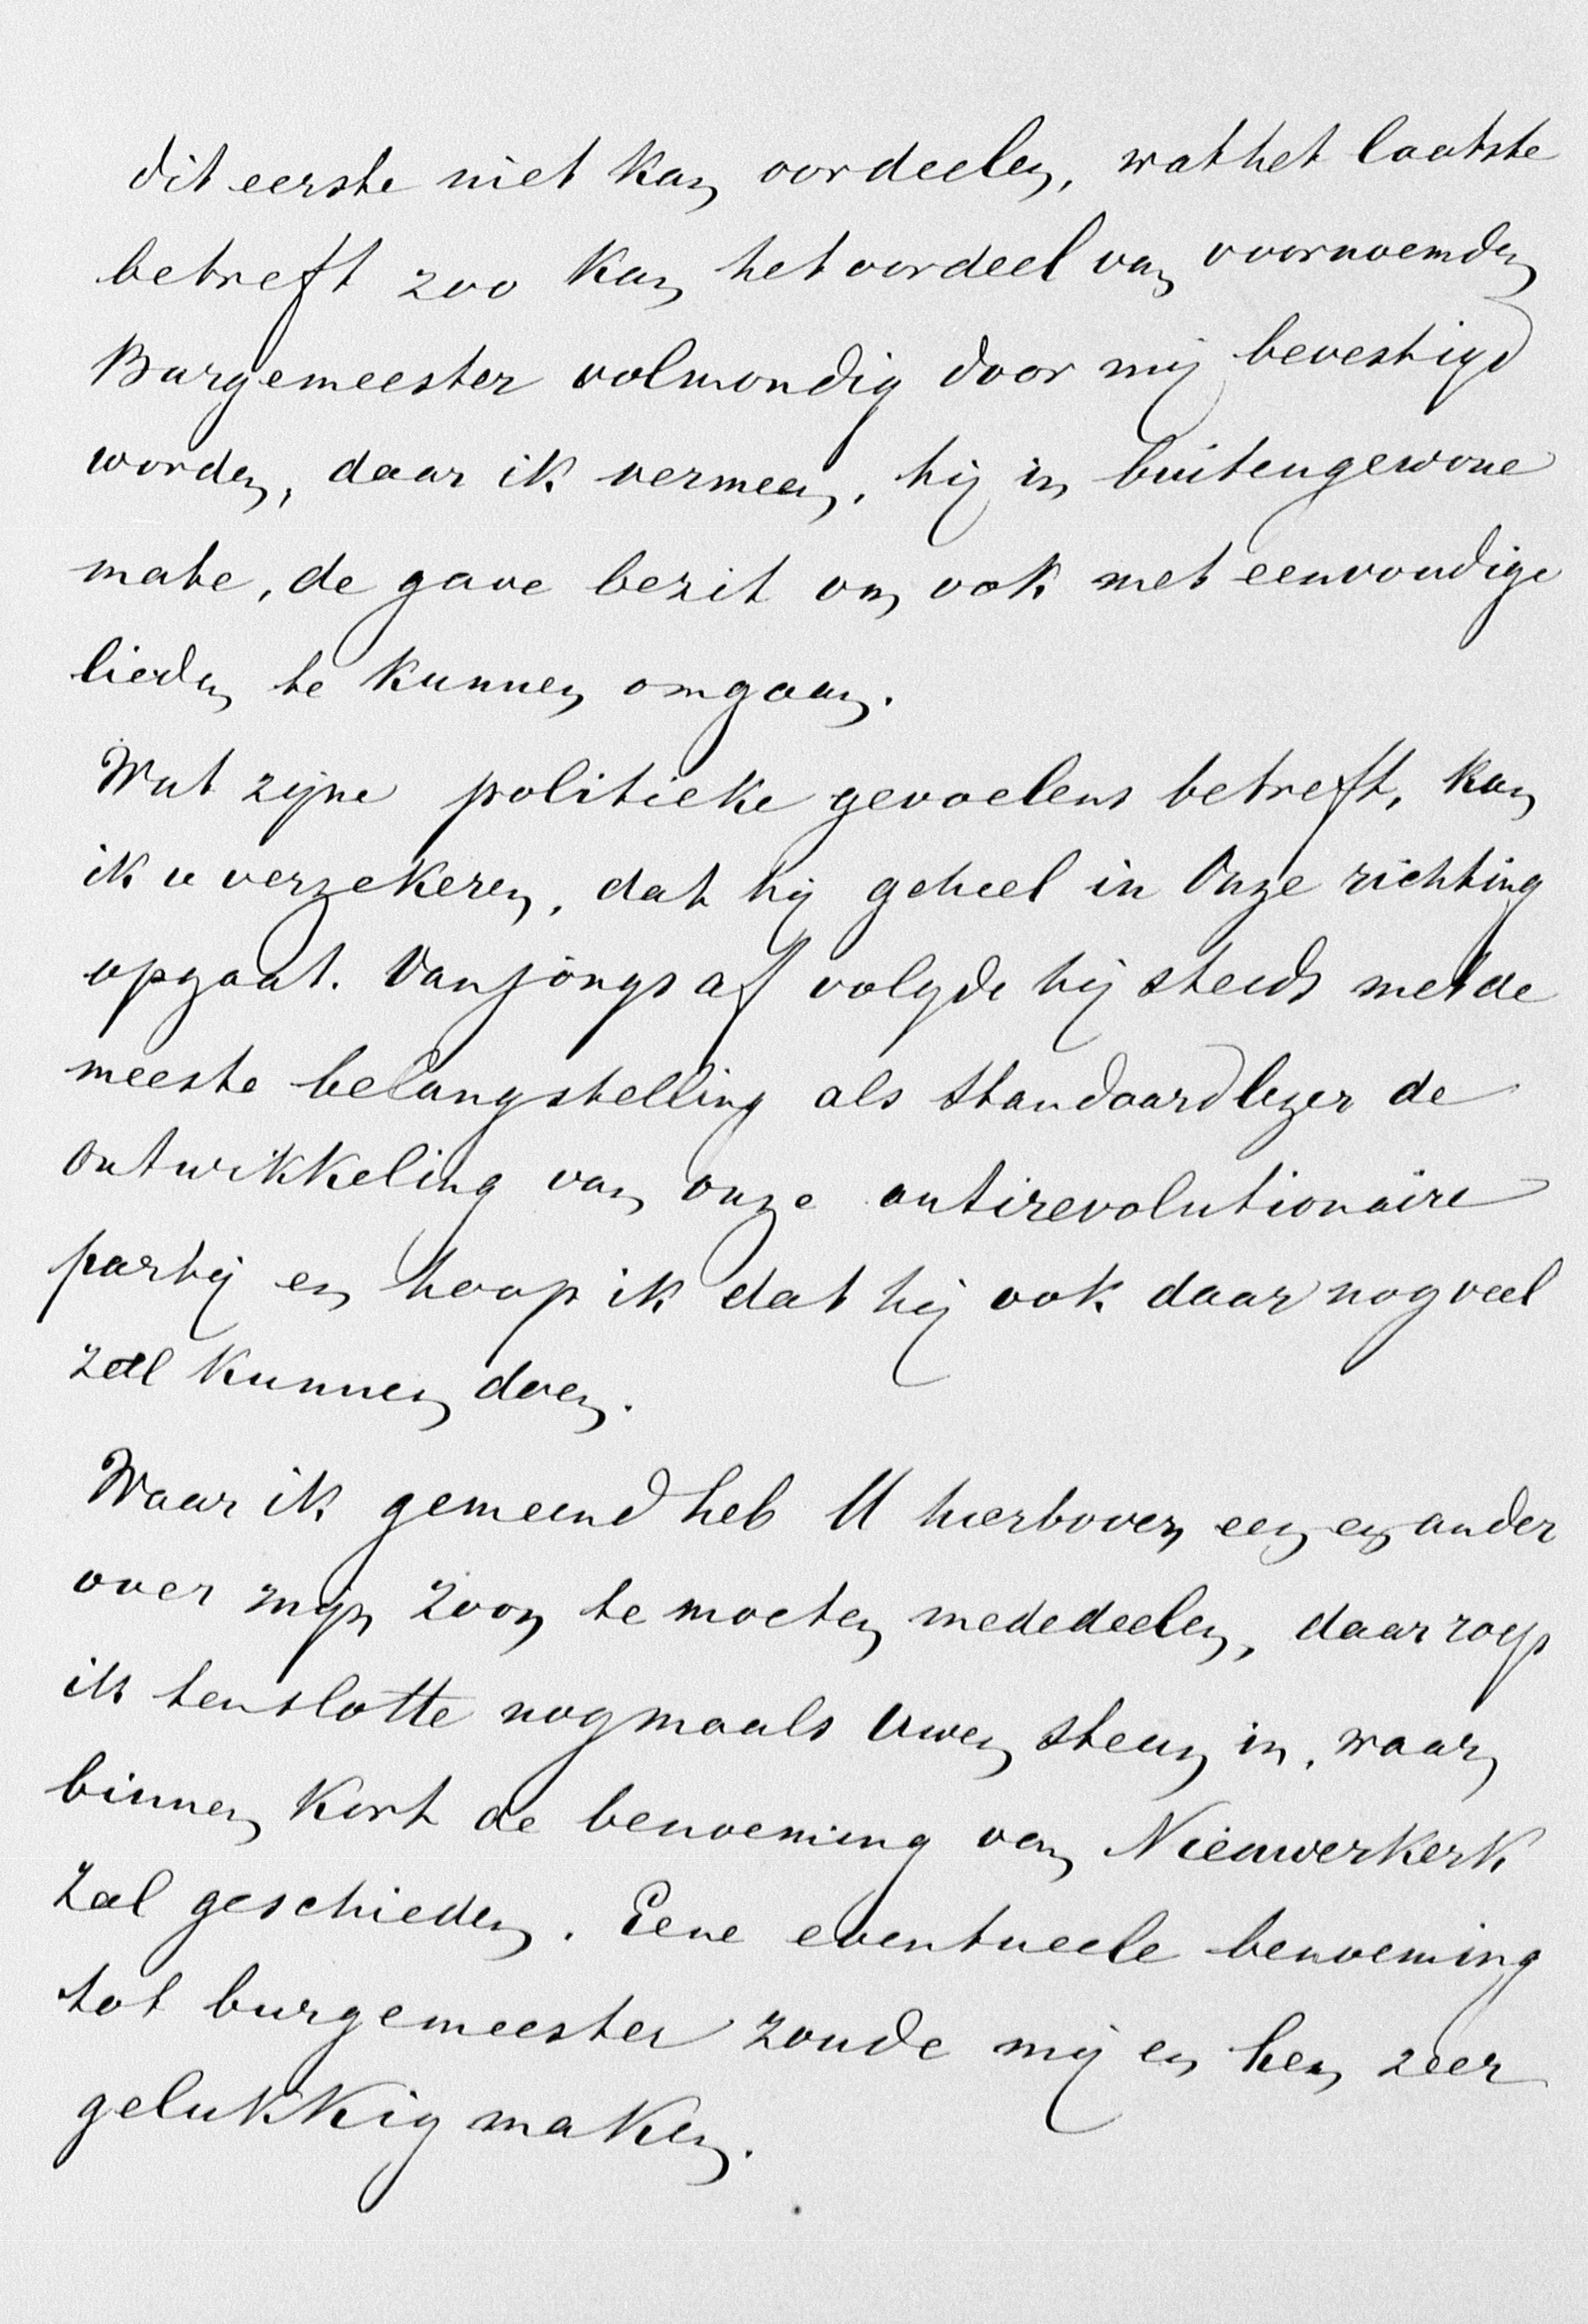 dit eerste niet kan oordeelen, wat het laatste
betreft zoo kan het oordeel van voornoemden
Burgemeester volmondig door mij bevestigd
worden, daar ik vermeen, hij in buitengewone
mate, de gave bezit om ook met eenvoudige
lieden te kunnen omgaan.
Wat zijne politieke gevoelens betreft, kan
ik u verzekeren, dat hij geheel in Onze richting
opgaat. Van jongs af volgde hij steeds met de
meeste belangstelling als Standaardlezer de
ontwikkeling van onze antirevolutionaire
partij en hoop ik dat hij ook daar nog veel
zal kunnen doen.
Waar ik gemeend heb U hierboven een en ander
over mijn zoon te moeten mededeelen, daar roep
ik tenslotte nogmaals Uwen steun in, waar
binnen kort de benoeming van Nieuwerkerk
zal geschieden. Eene eventueele benoeming
tot burgemeester zoude mij en hem zeer
gelukkig maken.